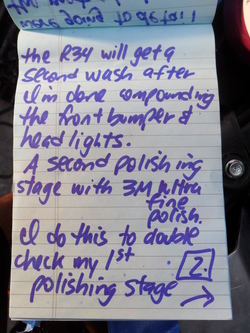 the R34 will get a
second wash after
I'm done compounding
the front bumper &
head lights.
A second polishing
stage with 3M ultra
fine
polish.
I do this to double
check my 1st
polishing stage
2.